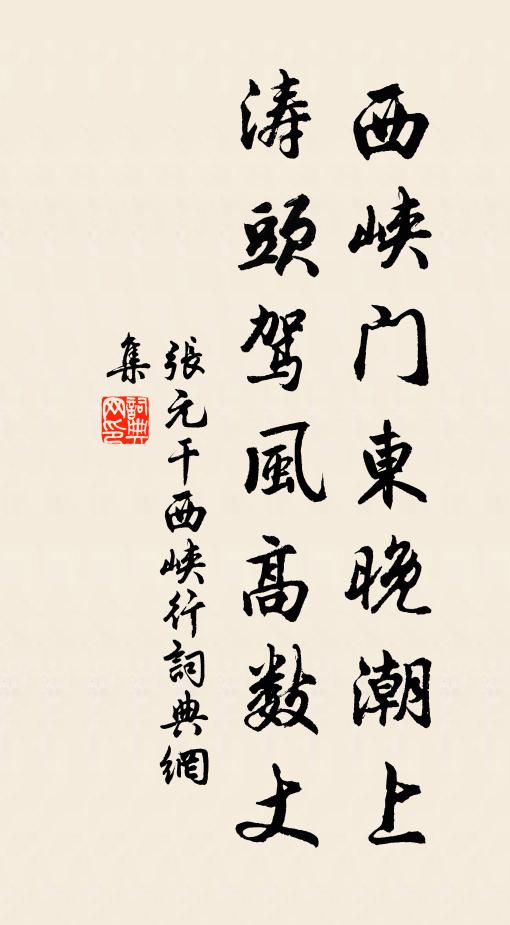 西峡門東晚潮上
涛頭駕風高数丈
張元干西峡行詞典網
集
詞典
网印